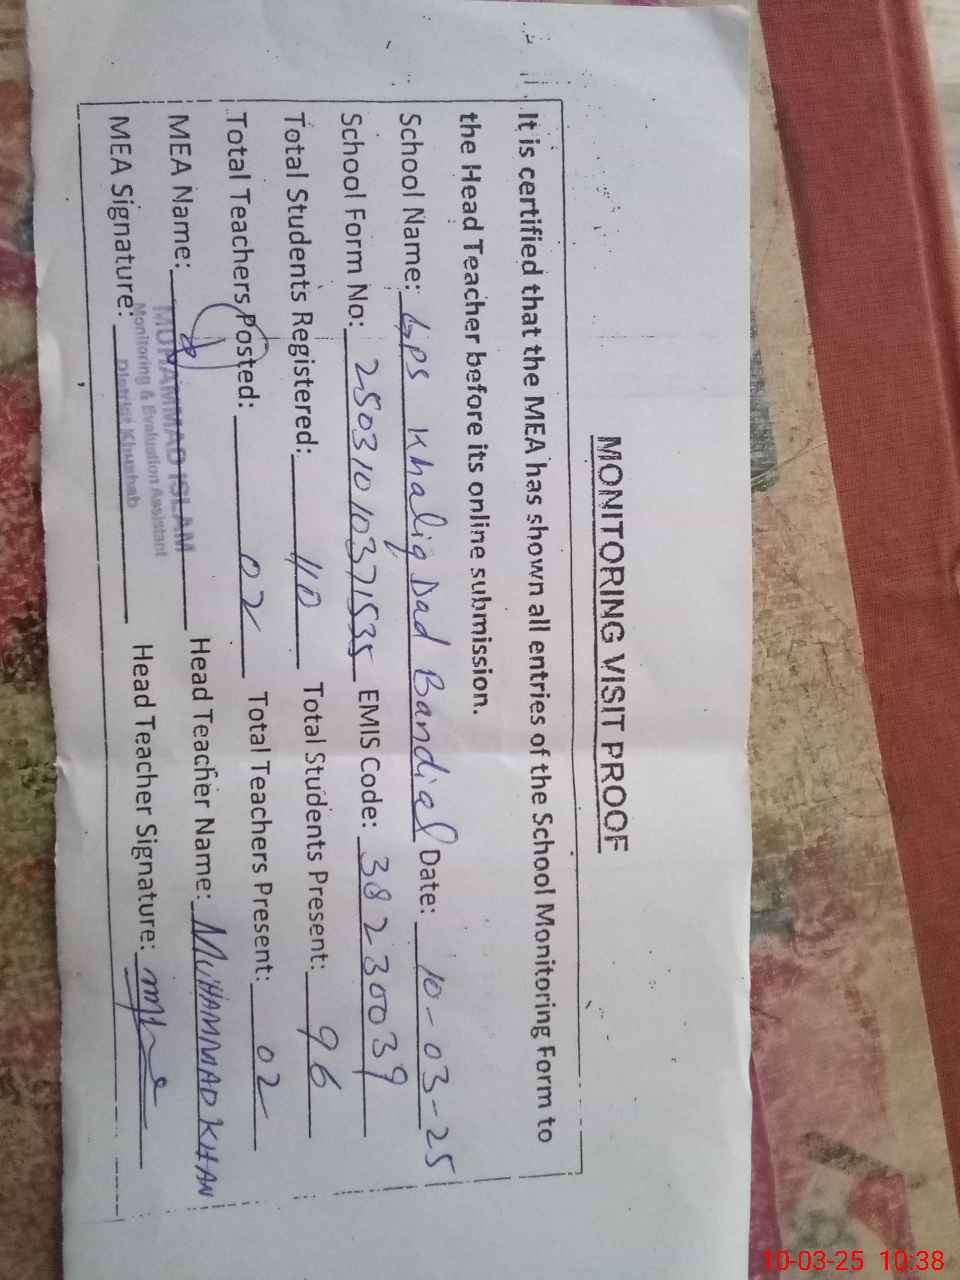 MONITORING VISIT PROOF
It is certified that the MEA has shown all entries of the School Monitoring Form to
the Head Teacher before its online submission.
School Name: GPS Khaliq Dad Bandial Date: 10-03-25
School Form No: 25031010371535 EMIS Code: 38230039
Total Students Registered: 110 Total Students Present: 96
Total Teachers Posted: 02 Total Teachers Present: 02
MEA Name: MUHAMMAD ISLAM Head Teacher Name: MUHAMMAD KHAN
Monitoring & Evaluation Assistant
District Khushab
MEA Signature: Head Teacher Signature:
10-03-25 10:38